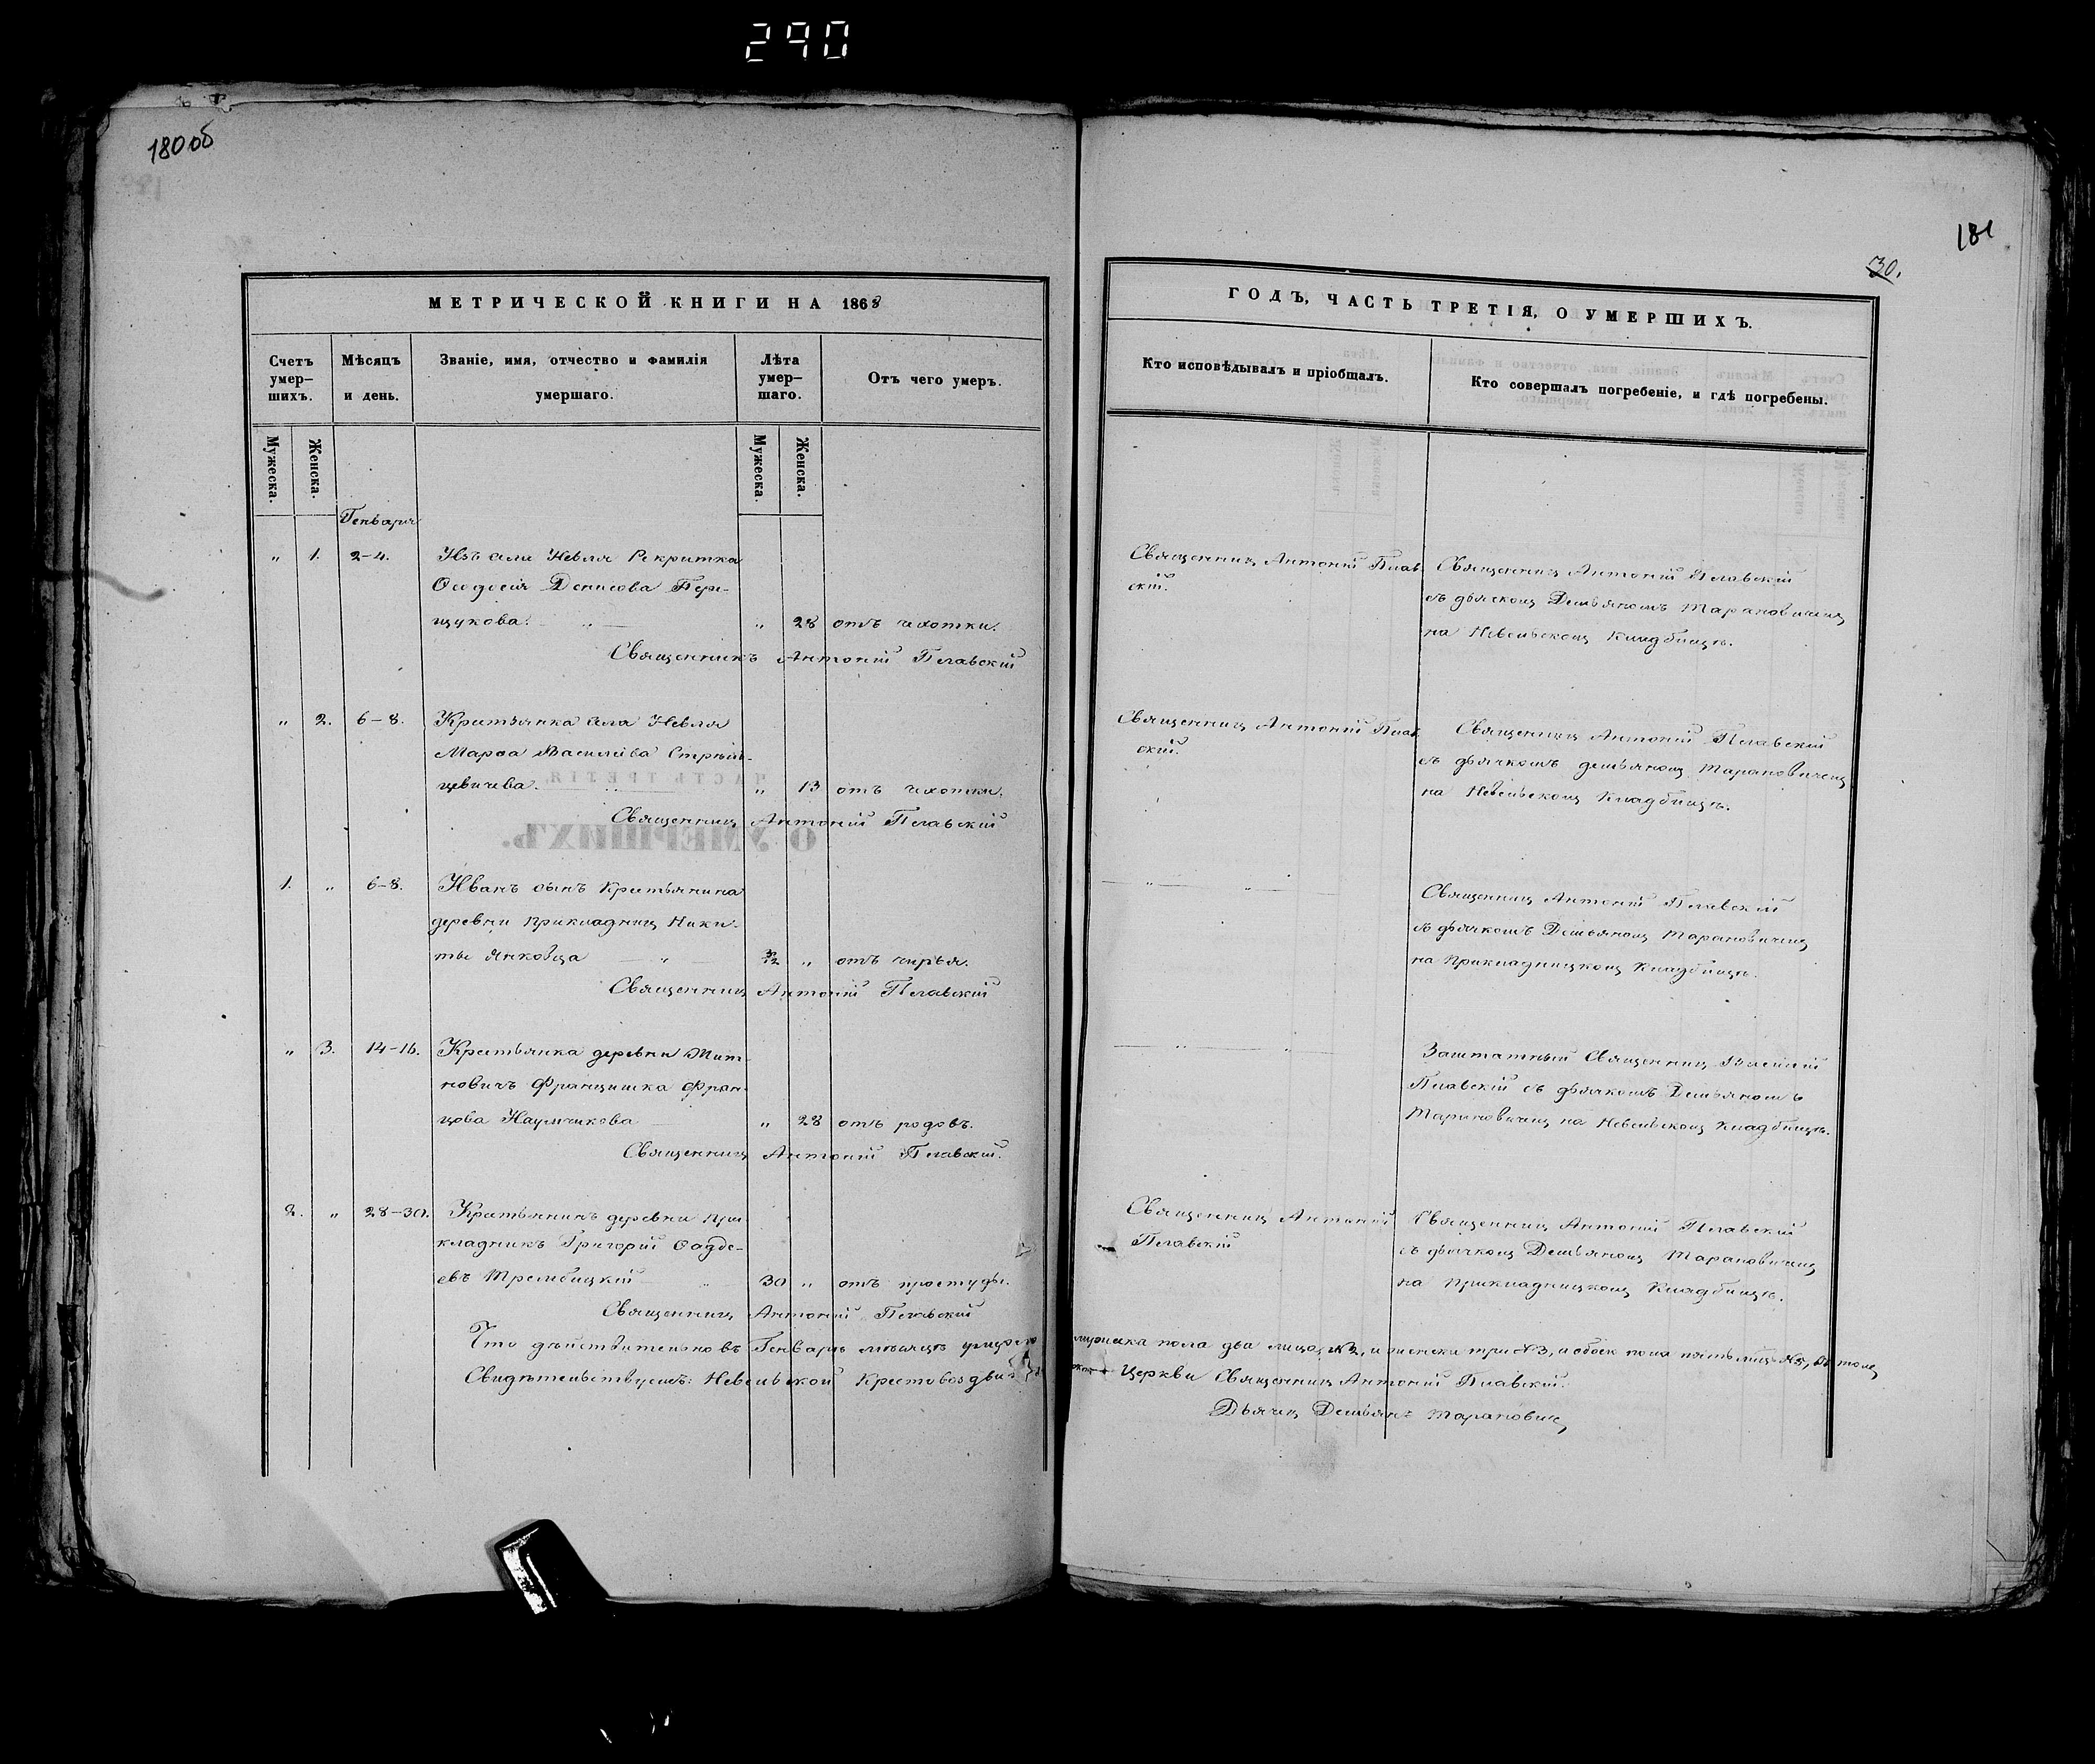 290
180 об
181
30.
МЕТРИЧЕСКОЙ КНИГИ НА 1868
ГОДЪ, ЧАСТЬ ТРЕТІЯ, О УМЕРШИХЪ.
Счетъ умер-шихъ.
Мѣсяцъ и день.
Званіе, имя, отчество и фамилія умершаго.
Лѣта умер-шаго.
Отъ чего умеръ.
Кто исповѣдывалъ и пріобщалъ.
Кто совершалъ погребеніе, и гдѣ погребены.
Мужеска.
Женска.
Мужеска.
Женска.
Генваря
„ 1. 2-4. Изъ села Невля Рекрутка
Ѳеодосія Денисова Пер-
щукова. „ 28 отъ чихотки.
Священникъ Антоній Плавскій
Священникъ Антоній Плав
скій.
Священникъ Антоній Плавскій
съ дьячкомъ Демьяномъ Тарановичемъ
на Невельскомъ Кладбищѣ.
„ 2. 6-8. Крестьянка села Невля
Марѳа Василева Стрѣль-
цевичева. „ 13 отъ чихотки.
Священникъ Антоній Плавскій
Священникъ Антоній Плав
скій.
Священникъ Антоній Плавскій
съ дьячкомъ Демьяномъ Тарановичемъ
на Невельскомъ Кладбищѣ.
1. „ 6-8. Иванъ сынъ Крестьянина
деревни Прикладникъ Ники-
ты Янковца „ отъ чирья.
Священникъ Антоній Плавскій
Священникъ Антоній Плавскій
съ дьячкомъ Демьяномъ Тарановичемъ
на Прикладницкомъ Кладбищѣ.
„ 3. 14-16. Крестьянка деревни
новичъ Францишка Фран-
цова Наумчикова „ 28 отъ родовъ.
Священникъ Антоній Плавскій.
Заштатный Священникъ Василій
Плавскій съ дьячкомъ Демьяномъ
Тарановичемъ на Невельскомъ Кладбищѣ.
2. „ 28-30. Крестьянинъ деревни При
кладникъ Григорій Ѳадде-
евъ Трембицкій 30 „ отъ простуды.
Священникъ Антоній Плавскій
Священникъ Антоній
Плавскій
Священникъ Антоній Плавскій
съ дьячкомъ Демьяномъ Тарановичемъ
на Прикладницкомъ Кладбищѣ.
Что дѣйствительно въ Генварѣ мѣсяцѣ умерло мужеска пола два лица №2, и женска три №3, и обоего пола пять лицъ №5, въ томъ
Свидѣтельствуемъ: Невельской Крестовоздви Церкви Священникъ Антоній Плавскій.
Дьячекъ Демьянъ Тарановичъ